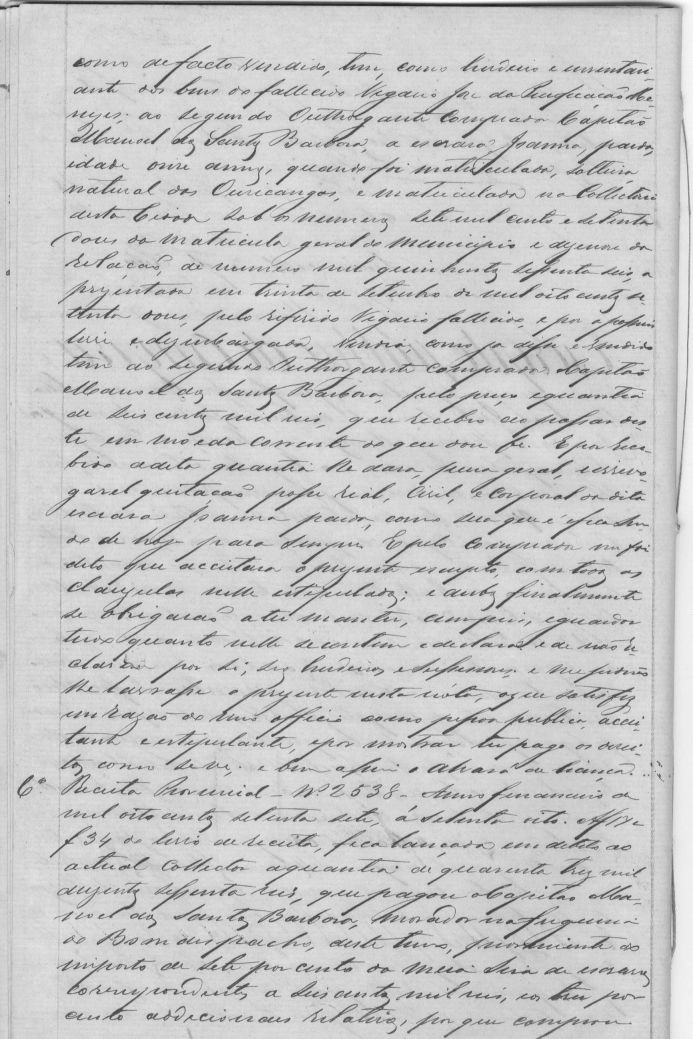 como de facto vendido, tem, como herdeiro e inventari-
ante dos bens do fallecido Vigario José da Purificação Me-
nezes: ao segundo Outhorgante comprador Capitão
Manoel dos Santos Barboza, a escrava Joanna, parda,
idade onze annos, quando foi matriculada, solteira
natural dos Ouriçangas, e matriculada na Collectoria
desta Cidade sob os numeros sete mil cento e setenta
dous da matricula geral do Municipio e dezenove da
relação, de numero mil quinhentos sessenta seis, a
prezentada em trinta de Setembro de mil oito centos se
tenta dous, pelo referido Vigario fallecido, e por a possuir
livre e dezembargada, vendia, como ja disse e vendido
tem ao segundo Outhorgante comprador Capitão
Manoel dos Santos Barboza, pelo preço e quantia
de seis centos mil reis, que recebeo ao passar des-
te em moeda corrente do que dou fé. E por rece-
bido a dita quantia lhe dava, plena geral, irrevo-
gavel quitação posse real, Civil, e corporal da dita
escrava Joanna parda, como sua que é e fica sen-
do de hoje para sempre. E pelo comprador me foi
dito que acceitava o prezente escripto, com todas as
clauzulas nelle estipuladas; e ambos finalmente
se obrigarão a ter manter, cumprir, e guardar
tudo quanto nelle se contem e declara e de não re-
clamar por si, seus herdeiros e sussessores; e me pedirão
lhe lavrasse o prezente nesta nota, o que satisfiz
em razão do meu officio como pessoa publica, accei-
tante e estipulante, e por mostrar ter pago os direi-
tos como se vê; e bem assim o alvará de licença.
6ª Receita Provincial - Nº 2538 - Anno financeiro de
mil oito centos setenta sete, á setenta oito. A
f 34 do livro de receita, fica lançada em debito ao
actual Collector a quantia de quarenta trez mil
duzentos sessenta reis, que pagou o Capitão Ma-
noel dos Santos Barboza, morador na freguezia
do Bom despacho, deste termo, proveniente do
imposto de sete por cento da meia siza de escravos
correspondentes a seis centos mil reis, e os trez por
cento addicionaes relativos, por que comprou